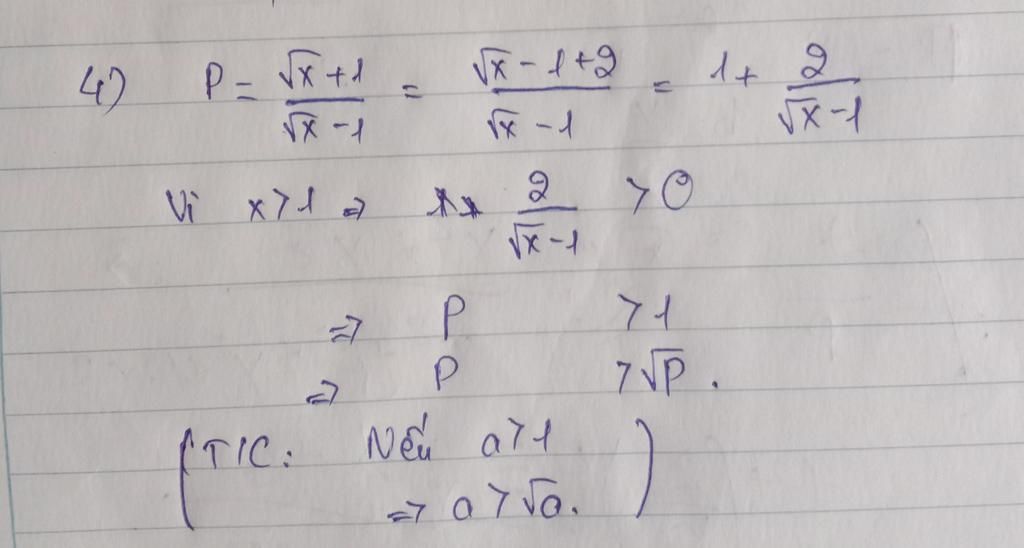 4) P = (√x + 1)/(√x - 1) = (√x - 1 + 2)/(√x - 1) = 1 + 2/(√x - 1)
Vì x > 1 => 2/(√x - 1) > 0
=> P > 1
=> P > √P.
(T/C: Nếu a > 1
=> a > √a.)